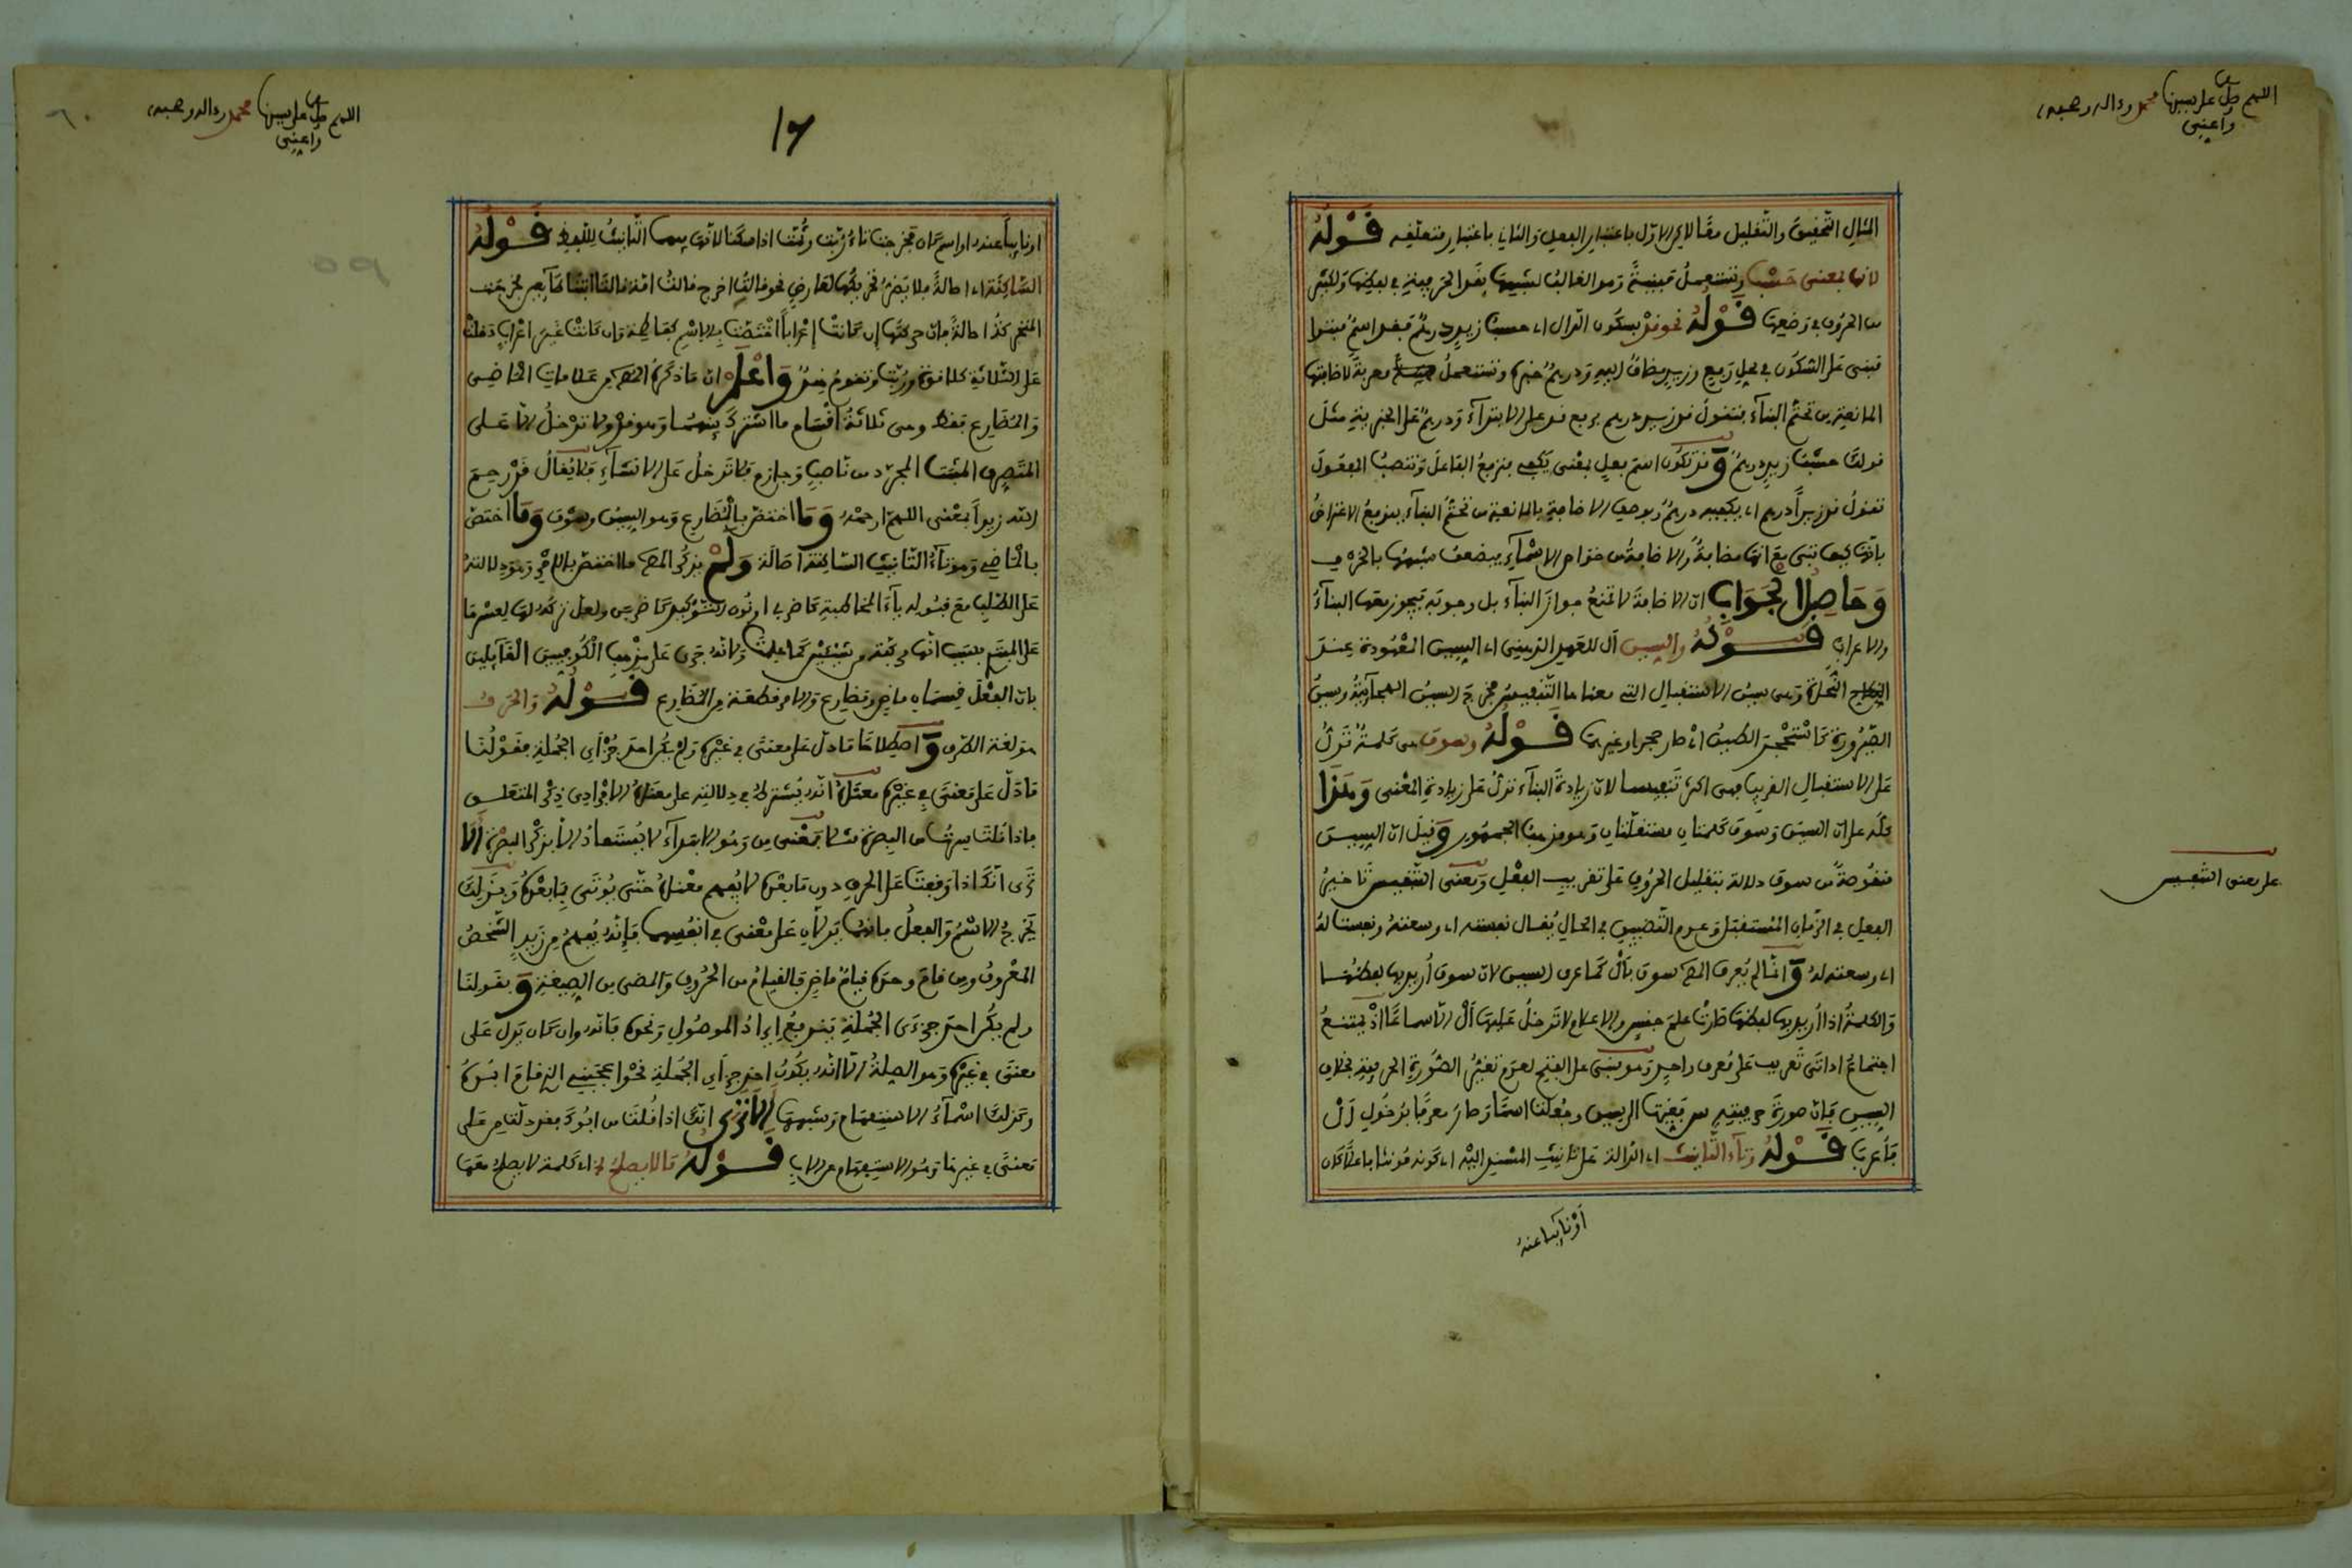 اللهم صل على سيدنا محمد وءاله وصحبه
وأعني
المثال التحقيق والتقليل معًا لاكن الاول باعتبار الفعل والثاني باعتبار متعلقه قوله
لانها بمعنى حسب وتستعمل مبنية وهو الغالب لشبهها بقد الحرفية في لفظها ولكثير
من الحروف في وضعها قوله نحو قد بسكون الدال اي حسب زيد درهم فقد اسم مبتدا
مبنى على السكون في محل رفع وزيد مضاف اليه ودرهم خبره وتستعمل معربة لاضافتها
المانعة من تحتم البناء فتقول قد زيد درهم برفع قد على الابتداء ودرهم على الخبرية مثل
قولك حسب زيد درهم وقد تكون اسم فعل بمعنى يكفي فترفع الفاعل وتنصب المفعول
تقول قد زيدًا درهم اي يكفيه درهم وبوصف الاضافة بالمانعية من تحتم البناء يندفع الاعتراض
بانها كيف تبنى مع انها مضافة والاضافة من خواص الاسماء فيضعف شبهها بالحرف
وحاصل الجواب ان الاضافة لا تمنع جواز البناء بل وجوبه فيجوز معها البناء
والاعراب قوله والسين ال للعهد الذهني اي السين المعهودة عند
النحاة وهي سين الاستقبال التي معناها التنفيس فخرج السين الهجائية وسين
الصيرورة كاستحجر الطين اي صار حجرا وغيرها قوله وسوف هي كلمة تدل
على الاستقبال القريب فهى اكثر تنفيسا لان زيادة البناء تدل على زيادة المعنى وهذا
كله على ان السين وسوف كلمتان مستقلتان وهو مذهب الجمهور وقيل ان السين
منقوصة من سوف دلالة بتقليل الحروف على تقريب الفعل ومعنى التنفيس تاخير
على معنى التنفيس
الفعل في الزمان المستقبل وعدم التضييق في الحال يقال نفسته اي وسعته ونفست له
اي وسعت له وانما لم يعرف المص سوف بال كما عرف السين لان سوف اريد بها لفظها
والكلمة اذا اريد بها لفظها صارت علم جنس والاعلام لا تدخل عليها ال الا سماعا اذ يمتنع
اجتماع اداتى تعريف على معرف واحد وهو مبنى على الفتح لعدم تغير الصورة الحرفية بخلاف
السين فان صورة حرفيته س فغيرتها الى سين وجعلتا اسما وصار معرفا بدخول ال
فاعربا قوله وتاء التانيث اي الدالة على تانيث المسند اليه اي كونه مونثا فاعلا كان
أو نايبا عنه
اللهم صل على سيدنا محمد وءاله وصحبه
وأعني
١٦
٦٠
او نايبا عنه او اسم كان فخرجت تاء ربت وثمت اذا سكنا لانها فيهما لتانيث اللفظ قوله
الساكنة اي اصالة فلا يضر تحريكها لعارض نحو قالت اخرج قالت امة قالتا اتينا طايعين فخرجت
المتحركة اصالة فان حركتها ان كانت اعرابا اختصت بالاسم كفاطمة وان كانت غير اعراب دخلت
على الثلاثة كلا قوة وربت وتقوم هند واعلم ان ما ذكره المص من علامات الماضي
والمضارع فقط وهى ثلاثة اقسام ما اشترك بينهما وهو قد ولا تدخل الا على
المتصرف المثبت المجرد من ناصب وجازم ولا تدخل على الانشاء فلا يقال قد رحم
الله زيدا بمعنى اللهم ارحمه وما اختص بالمضارع وهو السين وسوف وما اختص
بالماضي وهو تاء التانيث الساكنة اصالة ولم يذكر المص ما اختص بالامر وهو دلالته
على الطلب مع قبوله ياء المخاطبة كاضربي او نون التوكيد كاضربن ولعل تركه لها لعسرها
على المبتدئ بسبب انها مركبة من شيئين كما علمت ولانه جرى على مذهب الكوفيين القائلين
بان الفعل قسمان ماض ومضارع والامر قطعة من المضارع قوله والحرف
هو لغة الطرف واصطلاحا ما دل على معنى في غيره ولم يكن احد جزأي الجملة فقولنا
ما دل على معنى في غيره معناه انه يشترط في دلالته على معناه الافرادي ذكر المتعلق
فاذا قلت سرت من البصرة مثلا فمعنى من وهو الابتداء لا يستفاد الا بذكر البصرة الا
ترى انك اذا وقفت على الحرف دون ما بعده لا يفهم معناه حتى يوتى بما بعده وبذلك
يخرج الاسم والفعل فانهما يدلان على معنى في انفسهما فانه يفهم من زيد الشخص
المعروف ومن قام وحده قيام ماض فالقيام من الحروف والمضى من الصيغة وبقولنا
ولم يكن احد جزءي الجملة يندفع ايراد الموصول ونحوه فانه وان كان يدل على
معنى في غيره وهو الصلة الا انه يكون احد جزأي الجملة نحو اعجبني الذي قام ابوه
وكذلك اسماء الاستفهام وشبهها الا ترى انك اذا قلت من ابوك فقد دلت من على
معنى في غيرها وهو الاستفهام عن الاب قوله ما لا يصلح اي كلمة لا يصلح معها